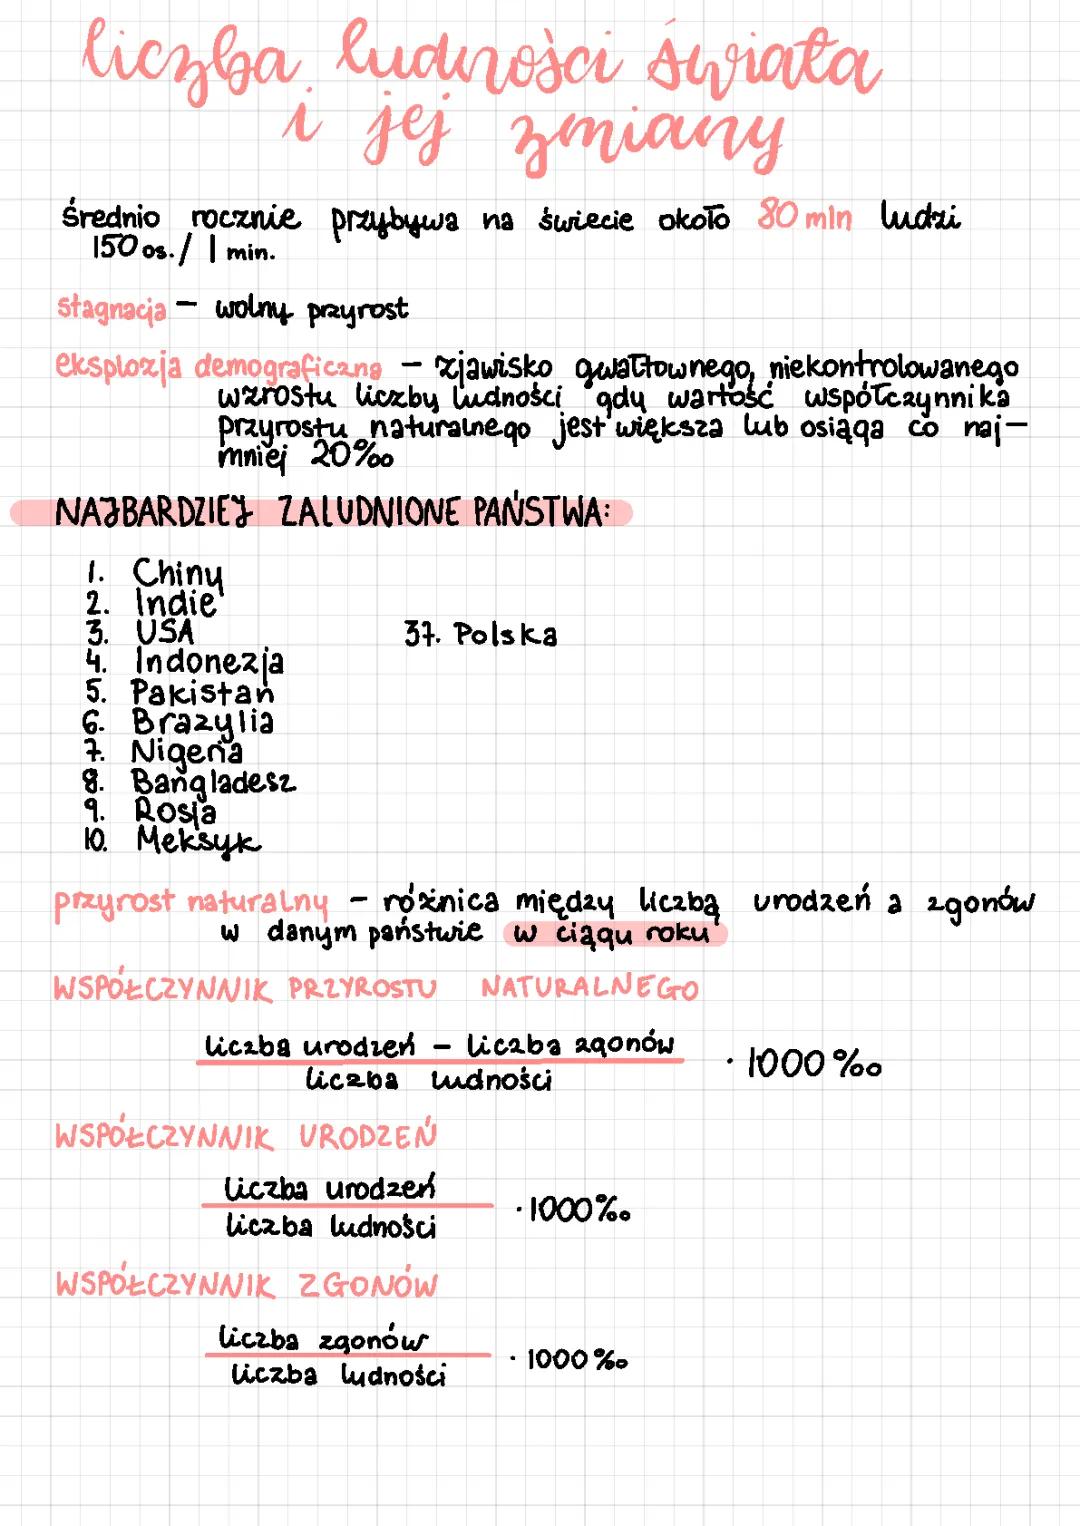 liczba ludności świata
i jej zmiany
średnio rocznie przybywa na świecie około 80 mln ludzi
150 os. / 1 min.
stagnacja – wolny przyrost
eksplozja demograficzna – zjawisko gwałtownego, niekontrolowanego
wzrostu liczby ludności gdy wartość współczynnika
przyrostu naturalnego jest większa lub osiąga co naj-
mniej 20‰
NAJBARDZIEJ ZALUDNIONE PAŃSTWA:
1. Chiny
2. Indie
3. USA 37. Polska
4. Indonezja
5. Pakistan
6. Brazylia
7. Nigeria
8. Bangladesz
9. Rosja
10. Meksyk
przyrost naturalny – różnica między liczbą urodzeń a zgonów
w danym państwie w ciągu roku
WSPÓŁCZYNNIK PRZYROSTU NATURALNEGO
liczba urodzeń – liczba zgonów
liczba ludności · 1000‰
WSPÓŁCZYNNIK URODZEŃ
liczba urodzeń
liczba ludności · 1000‰
WSPÓŁCZYNNIK ZGONÓW
liczba zgonów
liczba ludności · 1000‰